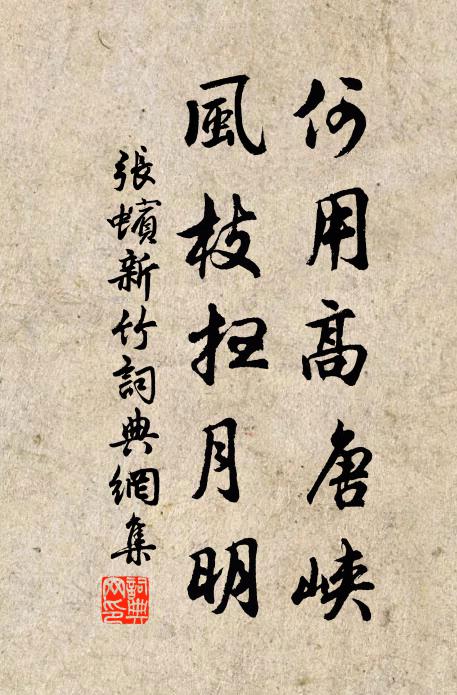 何用高唐峽
風枝扫月明
張蠙新竹詞典網集
詞典網印